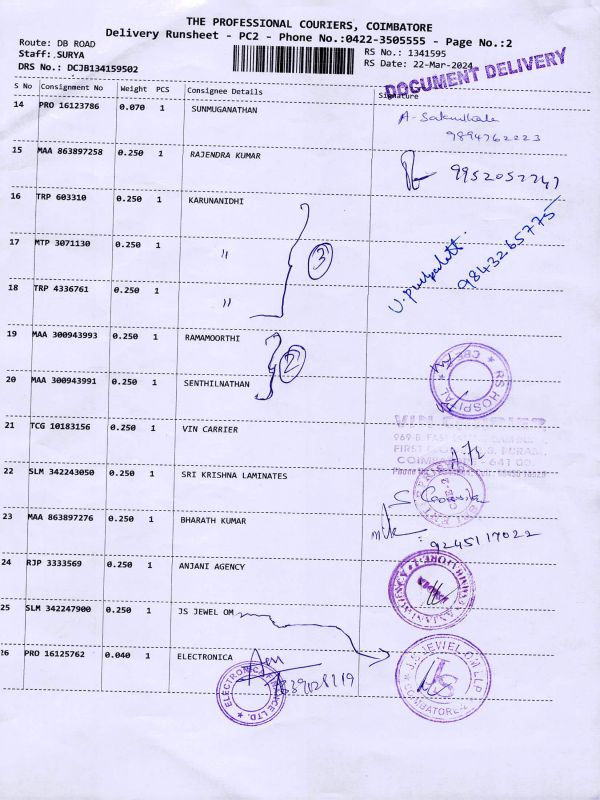 THE PROFESSIONAL COURIERS, COIMBATORE
Delivery Runsheet - PC2 - Phone No.:0422-3505555 - Page No.:2
Route: DB ROAD
RS No.: 1341595
Staff: SURYA
RS Date: 22-Mar-2024
DRS No.: DCJB134159502
DOCUMENT DELIVERY
S No Consignment No Weight PCS Consignee Details Signature
14 PRO 16123786 0.070 1 SUNMUGANATHAN
9894762223
15 MAA 863897258 0.250 1 RAJENDRA KUMAR
9952052747
16 TRP 603310 0.250 1 KARUNANIDHI
17 MTP 3071130 0.250 1 "
3
9843265775
18 TRP 4336761 0.250 1 "
19 MAA 300943993 0.250 1 RAMAMOORTHI
2
20 MAA 300943991 0.250 1 SENTHILNATHAN
RS HOSPITAL * CBE *
21 TCG 10183156 0.250 1 VIN CARRIER
VIN CARRIER
22 SLM 342243050 0.250 1 SRI KRISHNA LAMINATES
23 MAA 863897276 0.250 1 BHARATH KUMAR
9245117022
24 RJP 3333569 0.250 1 ANJANI AGENCY
25 SLM 342247900 0.250 1 JS JEWEL OM
26 PRO 16125762 0.040 1 ELECTRONICA